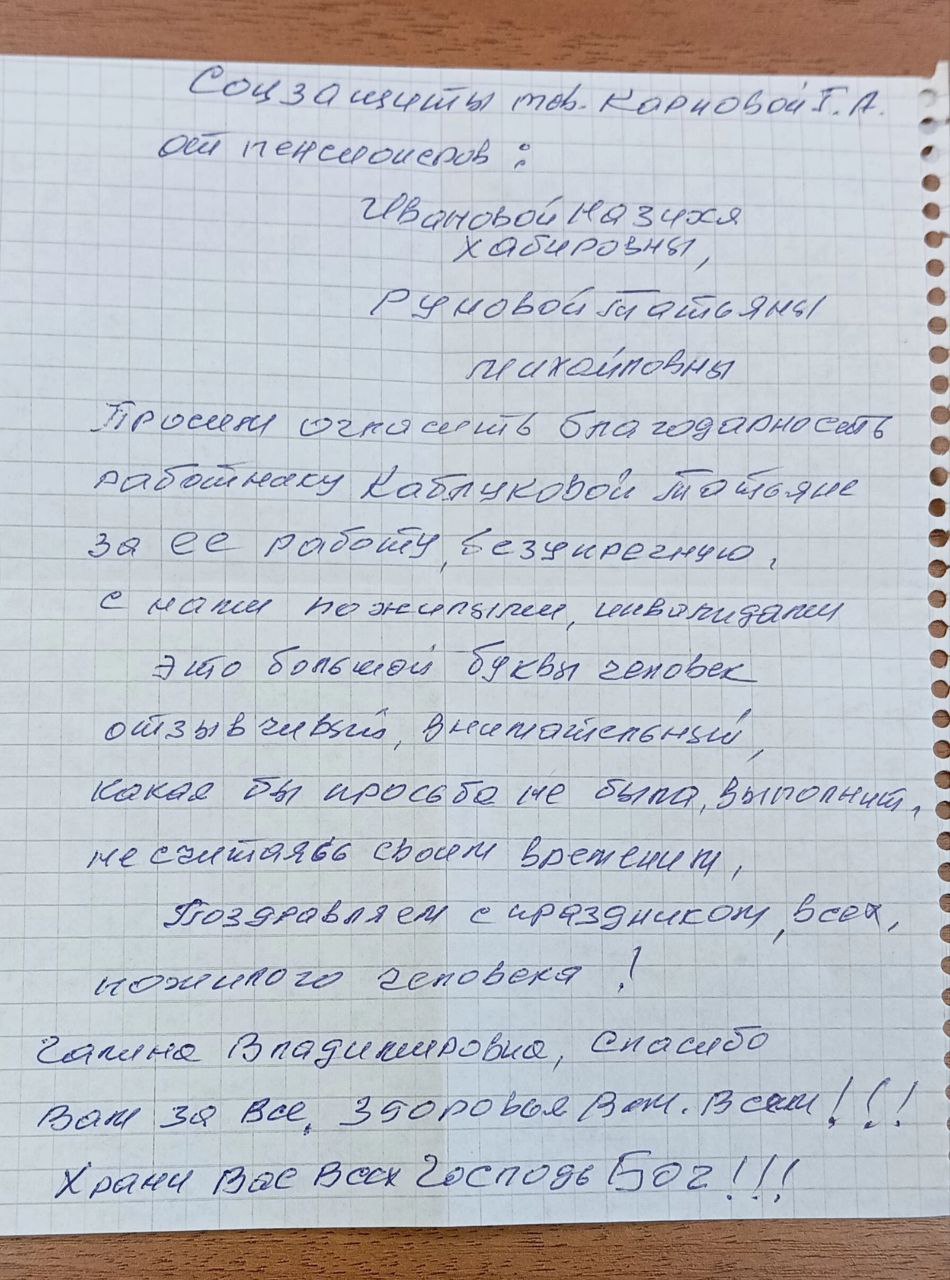 Соцзащиты тов. Карповой Г. А.
от пенсионеров :
Ивановой Назихя
Хабировны,
Руновой Татьяны
Михайловны
Просим огласить благодарность
работнику Каблуковой Татьяне
за ее работу, безупречную,
с нами пожилыми, инвалидами
Это большой буквы человек
отзывчивый, внимательный,
какая бы просьба не была, выполнит,
не считаясь своим временим,
Поздравляем с праздником, всех,
пожилого человека !
Галина Владимировна, Спасибо
Вам за все, Здоровья Вам. Всем ! ! !
Храни Вас Всех Господь Бог ! ! !